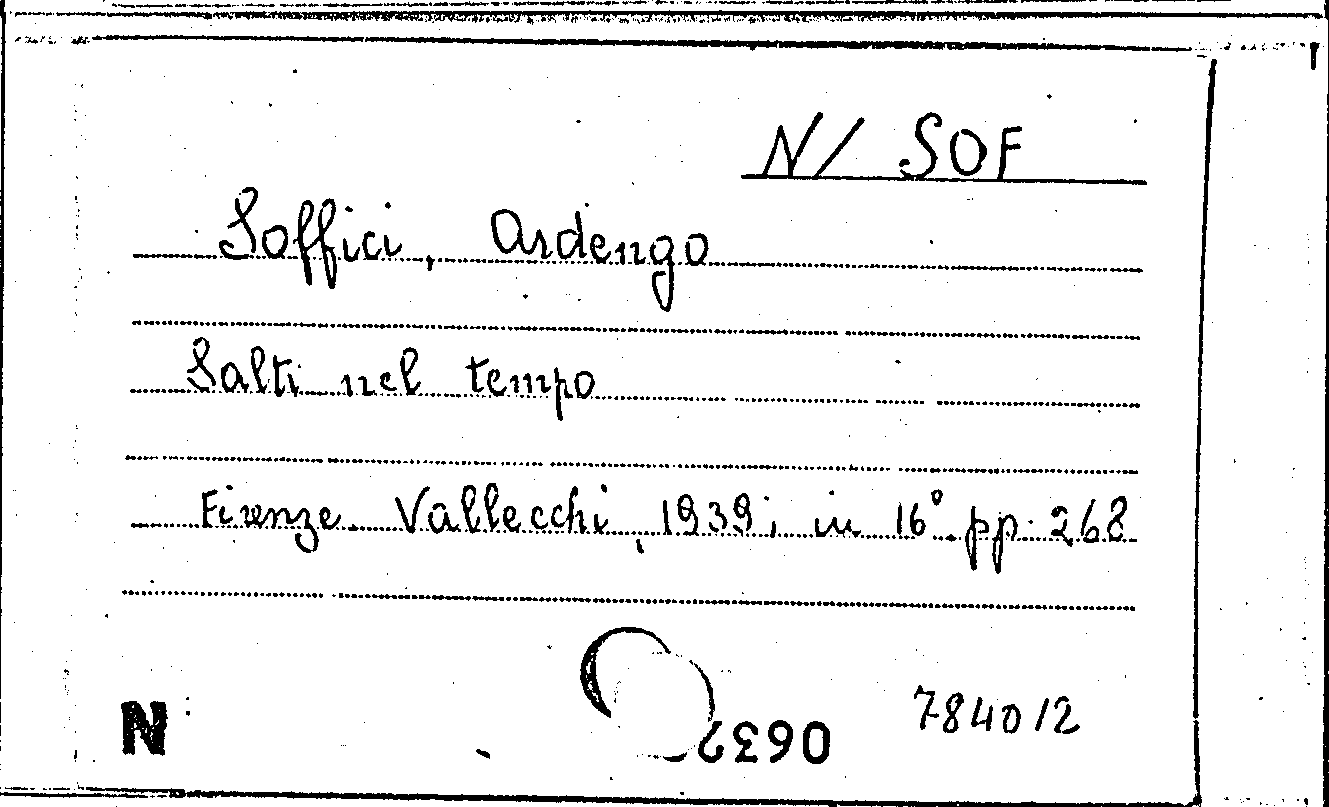 N/ SOF
Soffici, Ardengo
Salti nel tempo
Firenze. Vallecchi, 1939; in 16°. pp. 268
N
784012